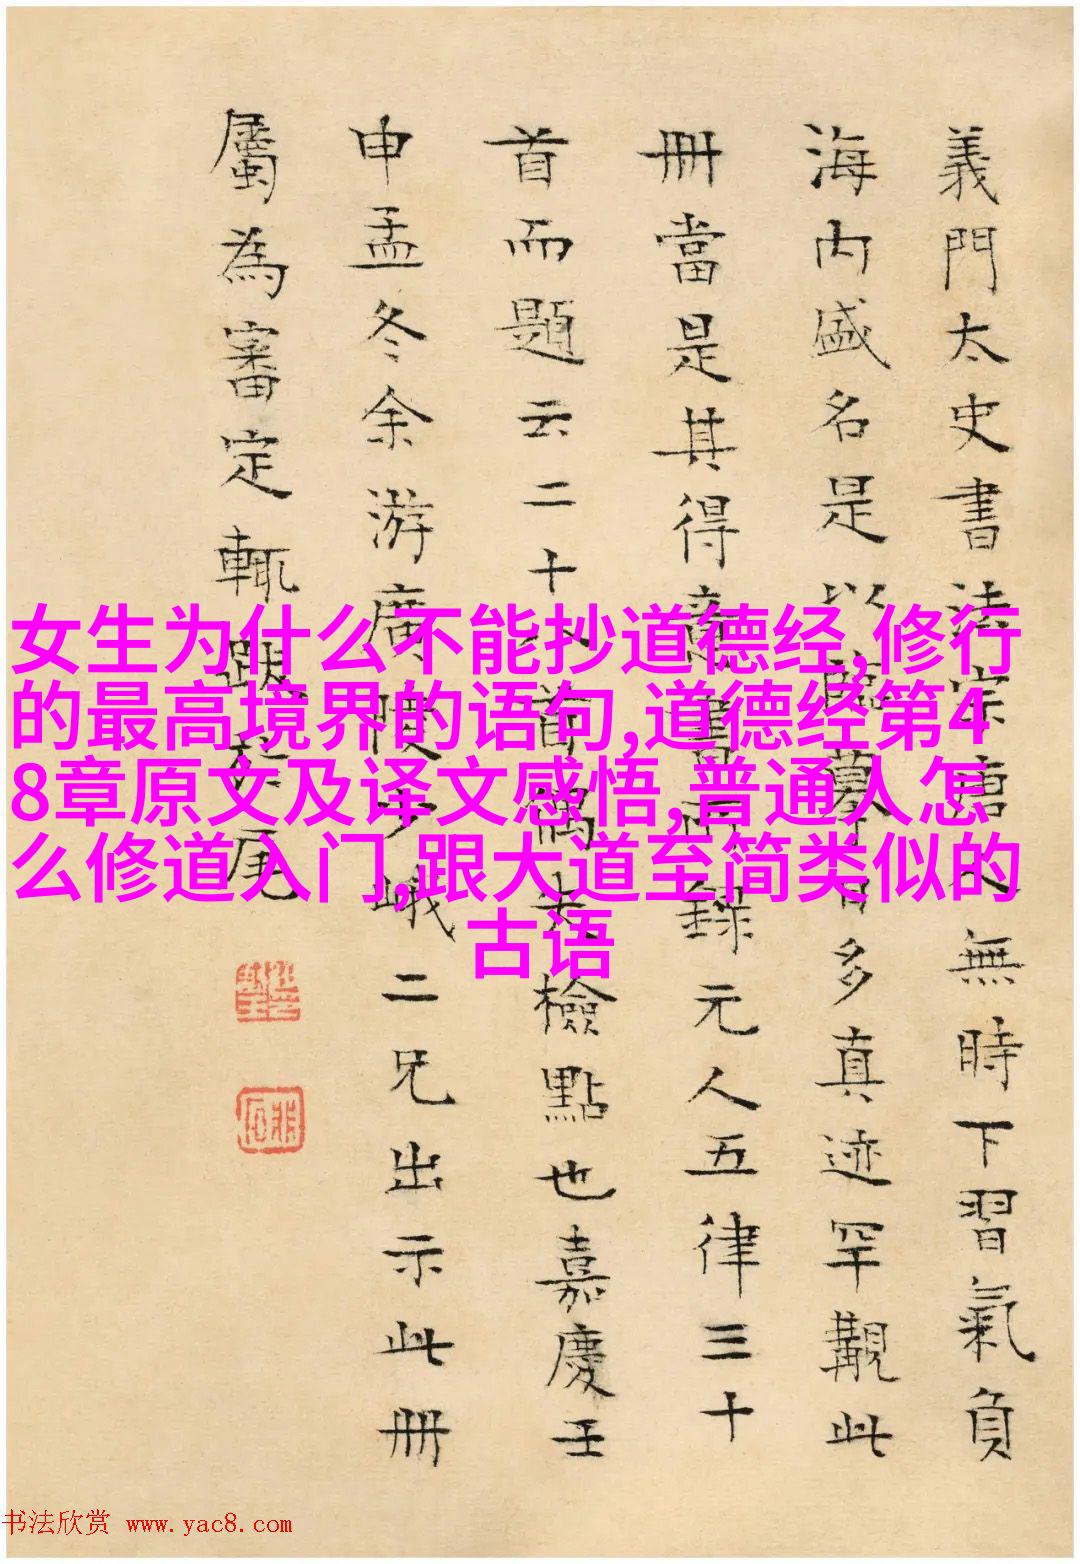 義門太史書法宗唐人無時下習氣負
海内盛名是以臨摹日多真迹罕觏此
冊當是其得意書所錄元人五律三十
首而題云二十八首偶失檢點也嘉慶壬
申孟冬余游廣陵少峨二兄出示此冊
屬為審定輒跋於尾
女生为什么不能抄道德经,修行
的最高境界的语句,道德经第4
8章原文及译文感悟,普通人怎
么修道入门,跟大道至简类似的
古语
书法欣赏 www.yac8.com